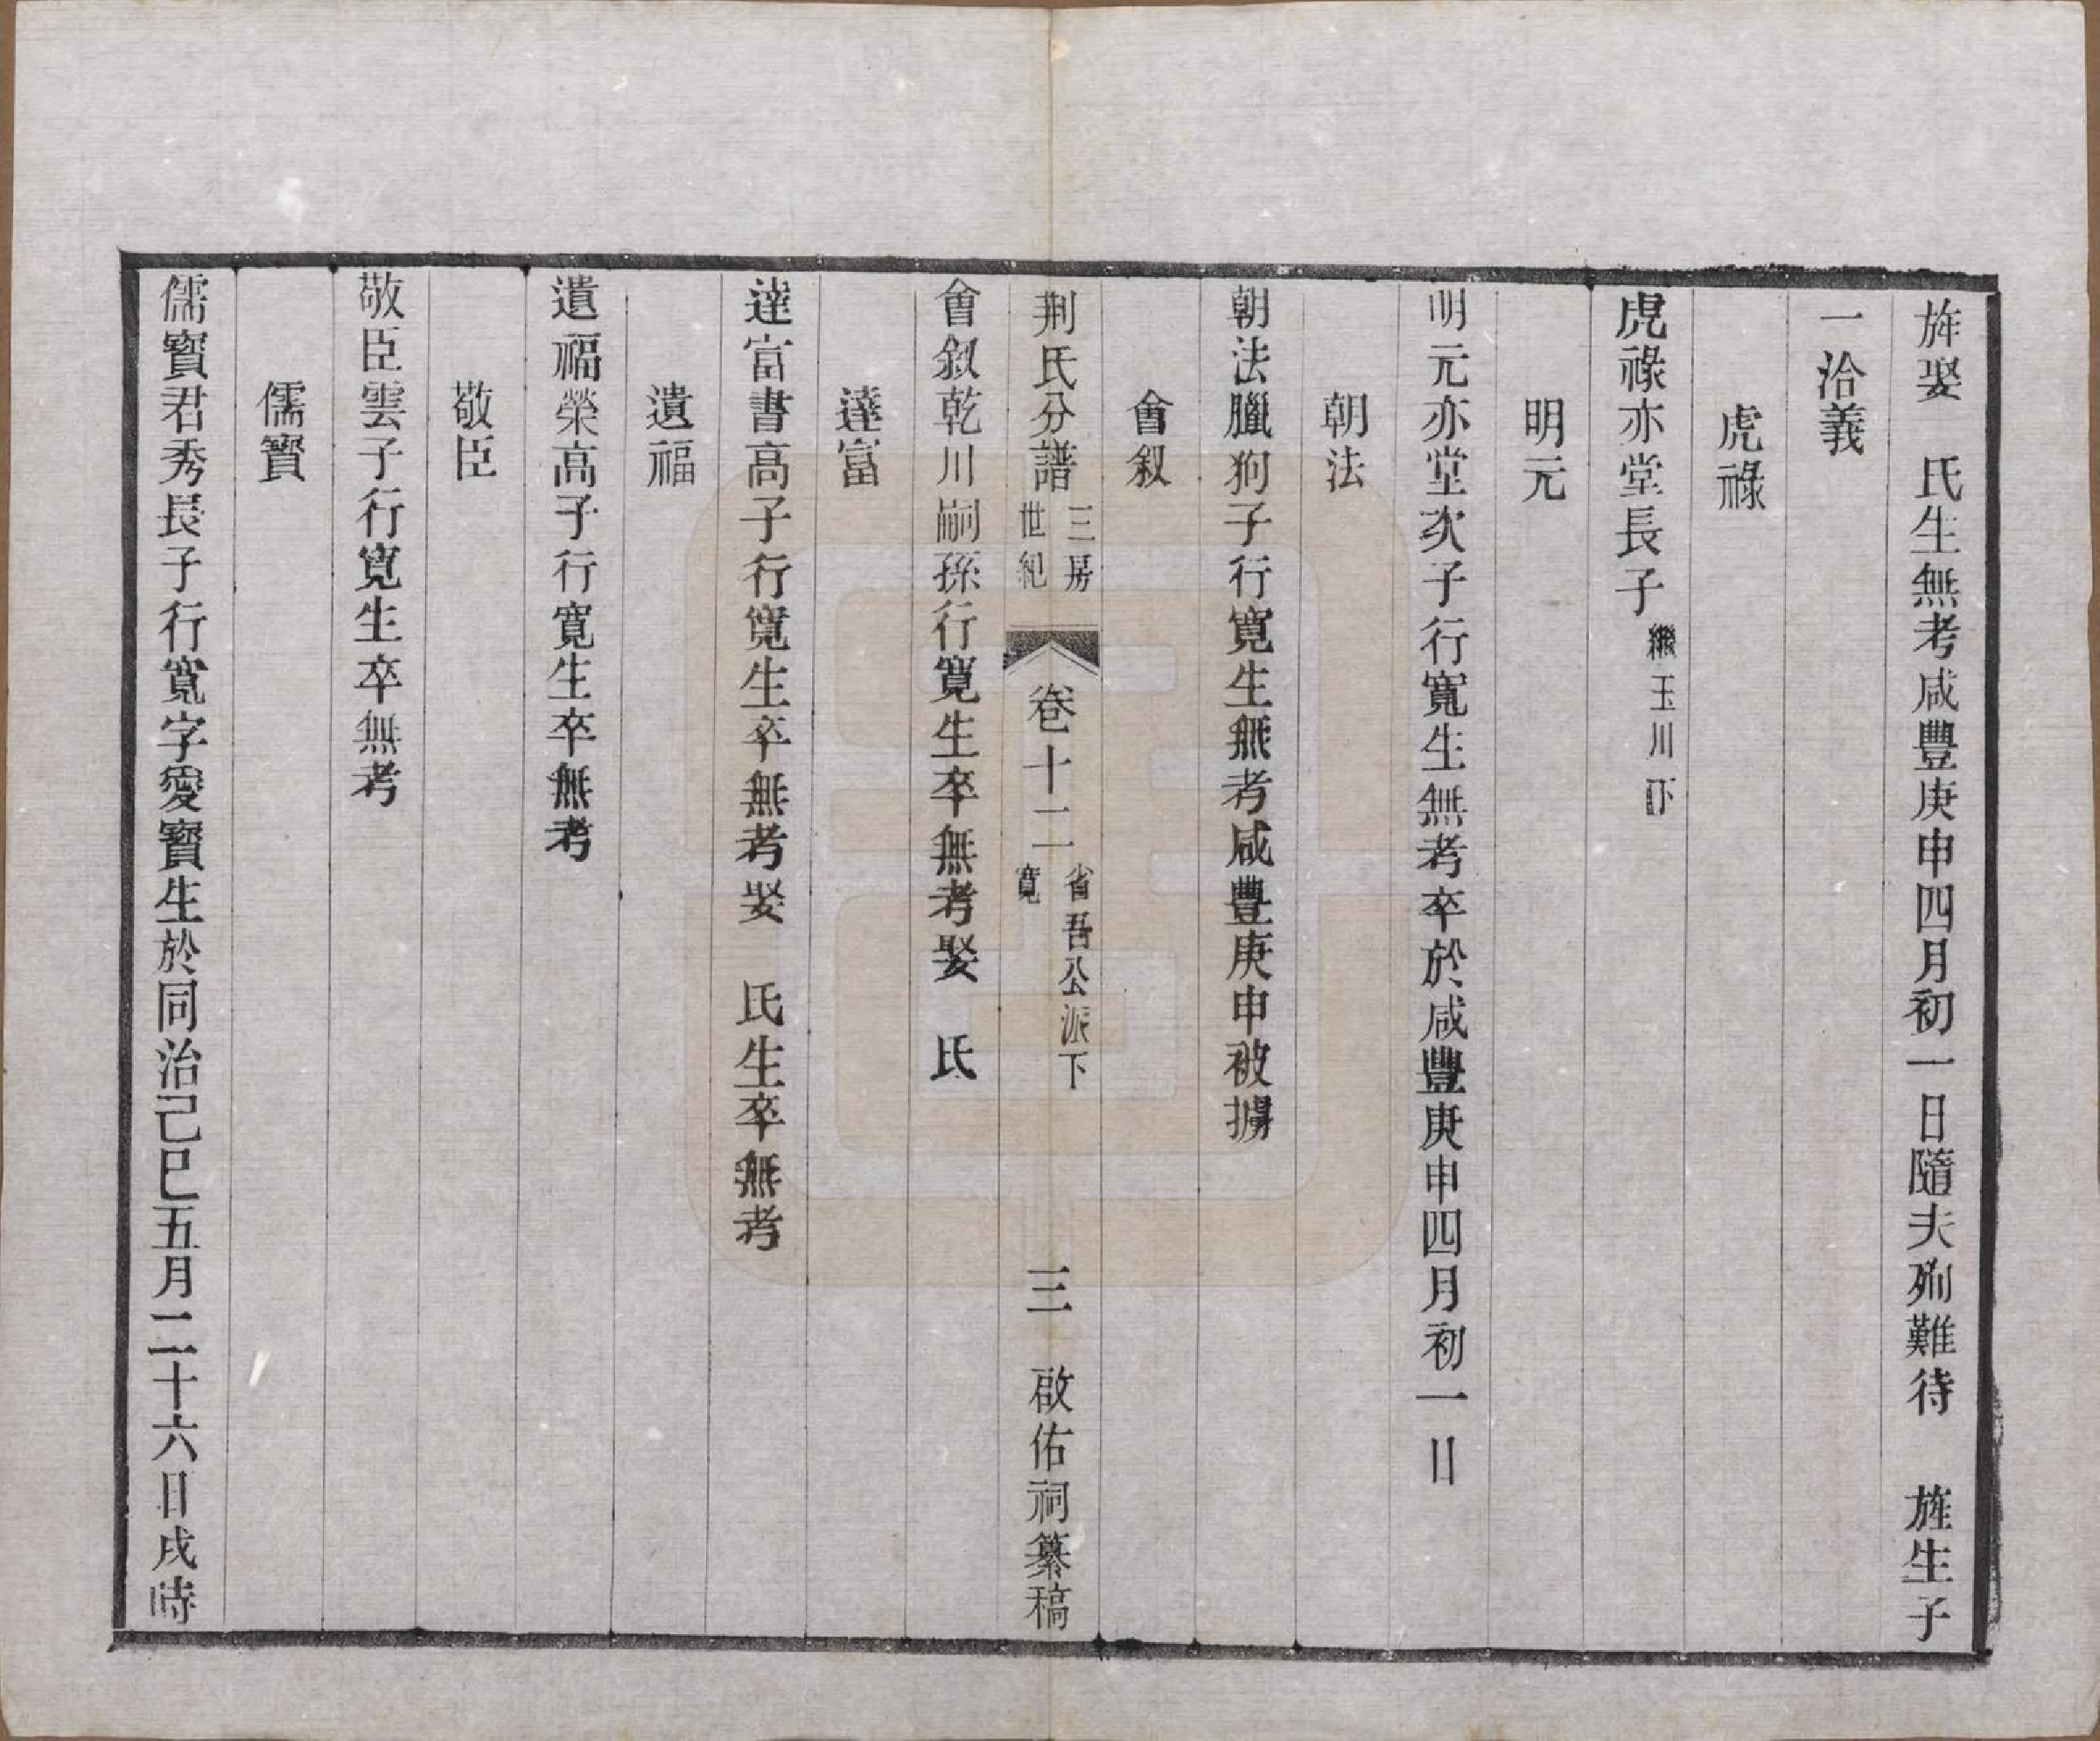 旌娶　氏生無考咸豐庚申四月初一日隨夫殉難待　旌生子
一洽義
虎祿
虎祿亦堂長子繼玉川下
明元
明元亦堂次子行寬生無考卒於咸豐庚申四月初一日
朝法
朝法臘狗子行寬生無考咸豐庚申被擄
會叙
荆氏分譜 三房世紀 卷十二 省吾公派下寬 三 啟佑祠纂稿
會叙乾川嗣孫行寬生卒無考娶　氏
達富
達富書高子行寬生卒無考娶　氏生卒無考
遺福
遺福榮高子行寬生卒無考
敬臣
敬臣雲子行寬生卒無考
儒寶
儒寶君秀長子行寬字愛寶生於同治己巳五月二十六日戌時